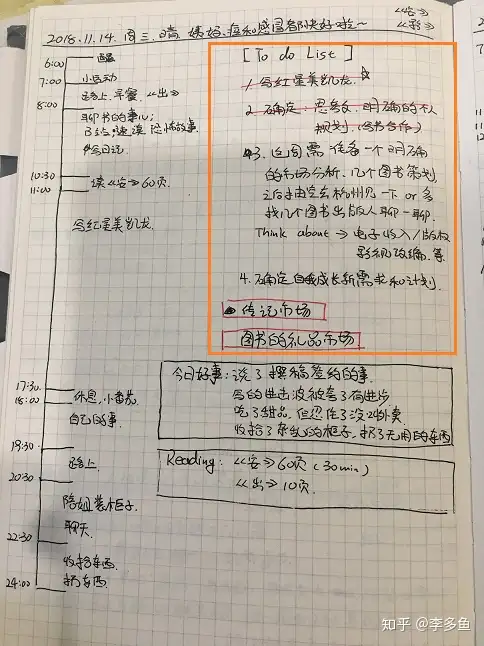 《容》
《彩》
2018.11.14. 周三.晴 姨妈.痘和感冒都快好啦~
6:00
7:00 小运动
8:00 路上.早餐.《出》
聊书的事儿;
今日记.
10:30
11:00 读《容》60页.
写红星美凯龙
17:30
18:00 休息,小番茄
自己的事
19:30
路上
20:30
陪姐装柜子.
聊天
22:30
收拾东西
扔东西.
24:00
[To do List]
1. 写红星美凯龙.
2. 确定:思考好,明确的个人
规划.(给书合作)
3. 这周需准备一个明确
的市场分析.几个图书策划
之后抽空去杭州见一下 or 多
找几个图书出版人聊一聊.
Think about → 电子收入/版权
影视改编.等
4. 确定自我成长新需求和计划.
传记市场
图书的礼品市场
今日好事:说了撰稿签约的事.
写的曲击波被夸了有进步
吃了甜品,但忍住了没吃外卖
收拾了杂乱的柜子,扔了无用的东西
Reading: 《容》60页(30min)
《出》10页.
知乎 @李多鱼